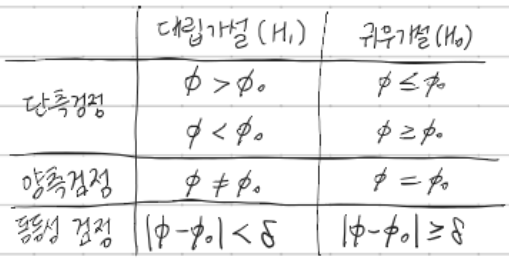 대립가설 (H₁) 귀무가설 (H₀)
단측검정 φ > φ₀ φ ≤ φ₀
φ < φ₀ φ ≥ φ₀
양측검정 φ ≠ φ₀ φ = φ₀
동등성 검정 |φ-φ₀| < δ |φ-φ₀| ≥ δ